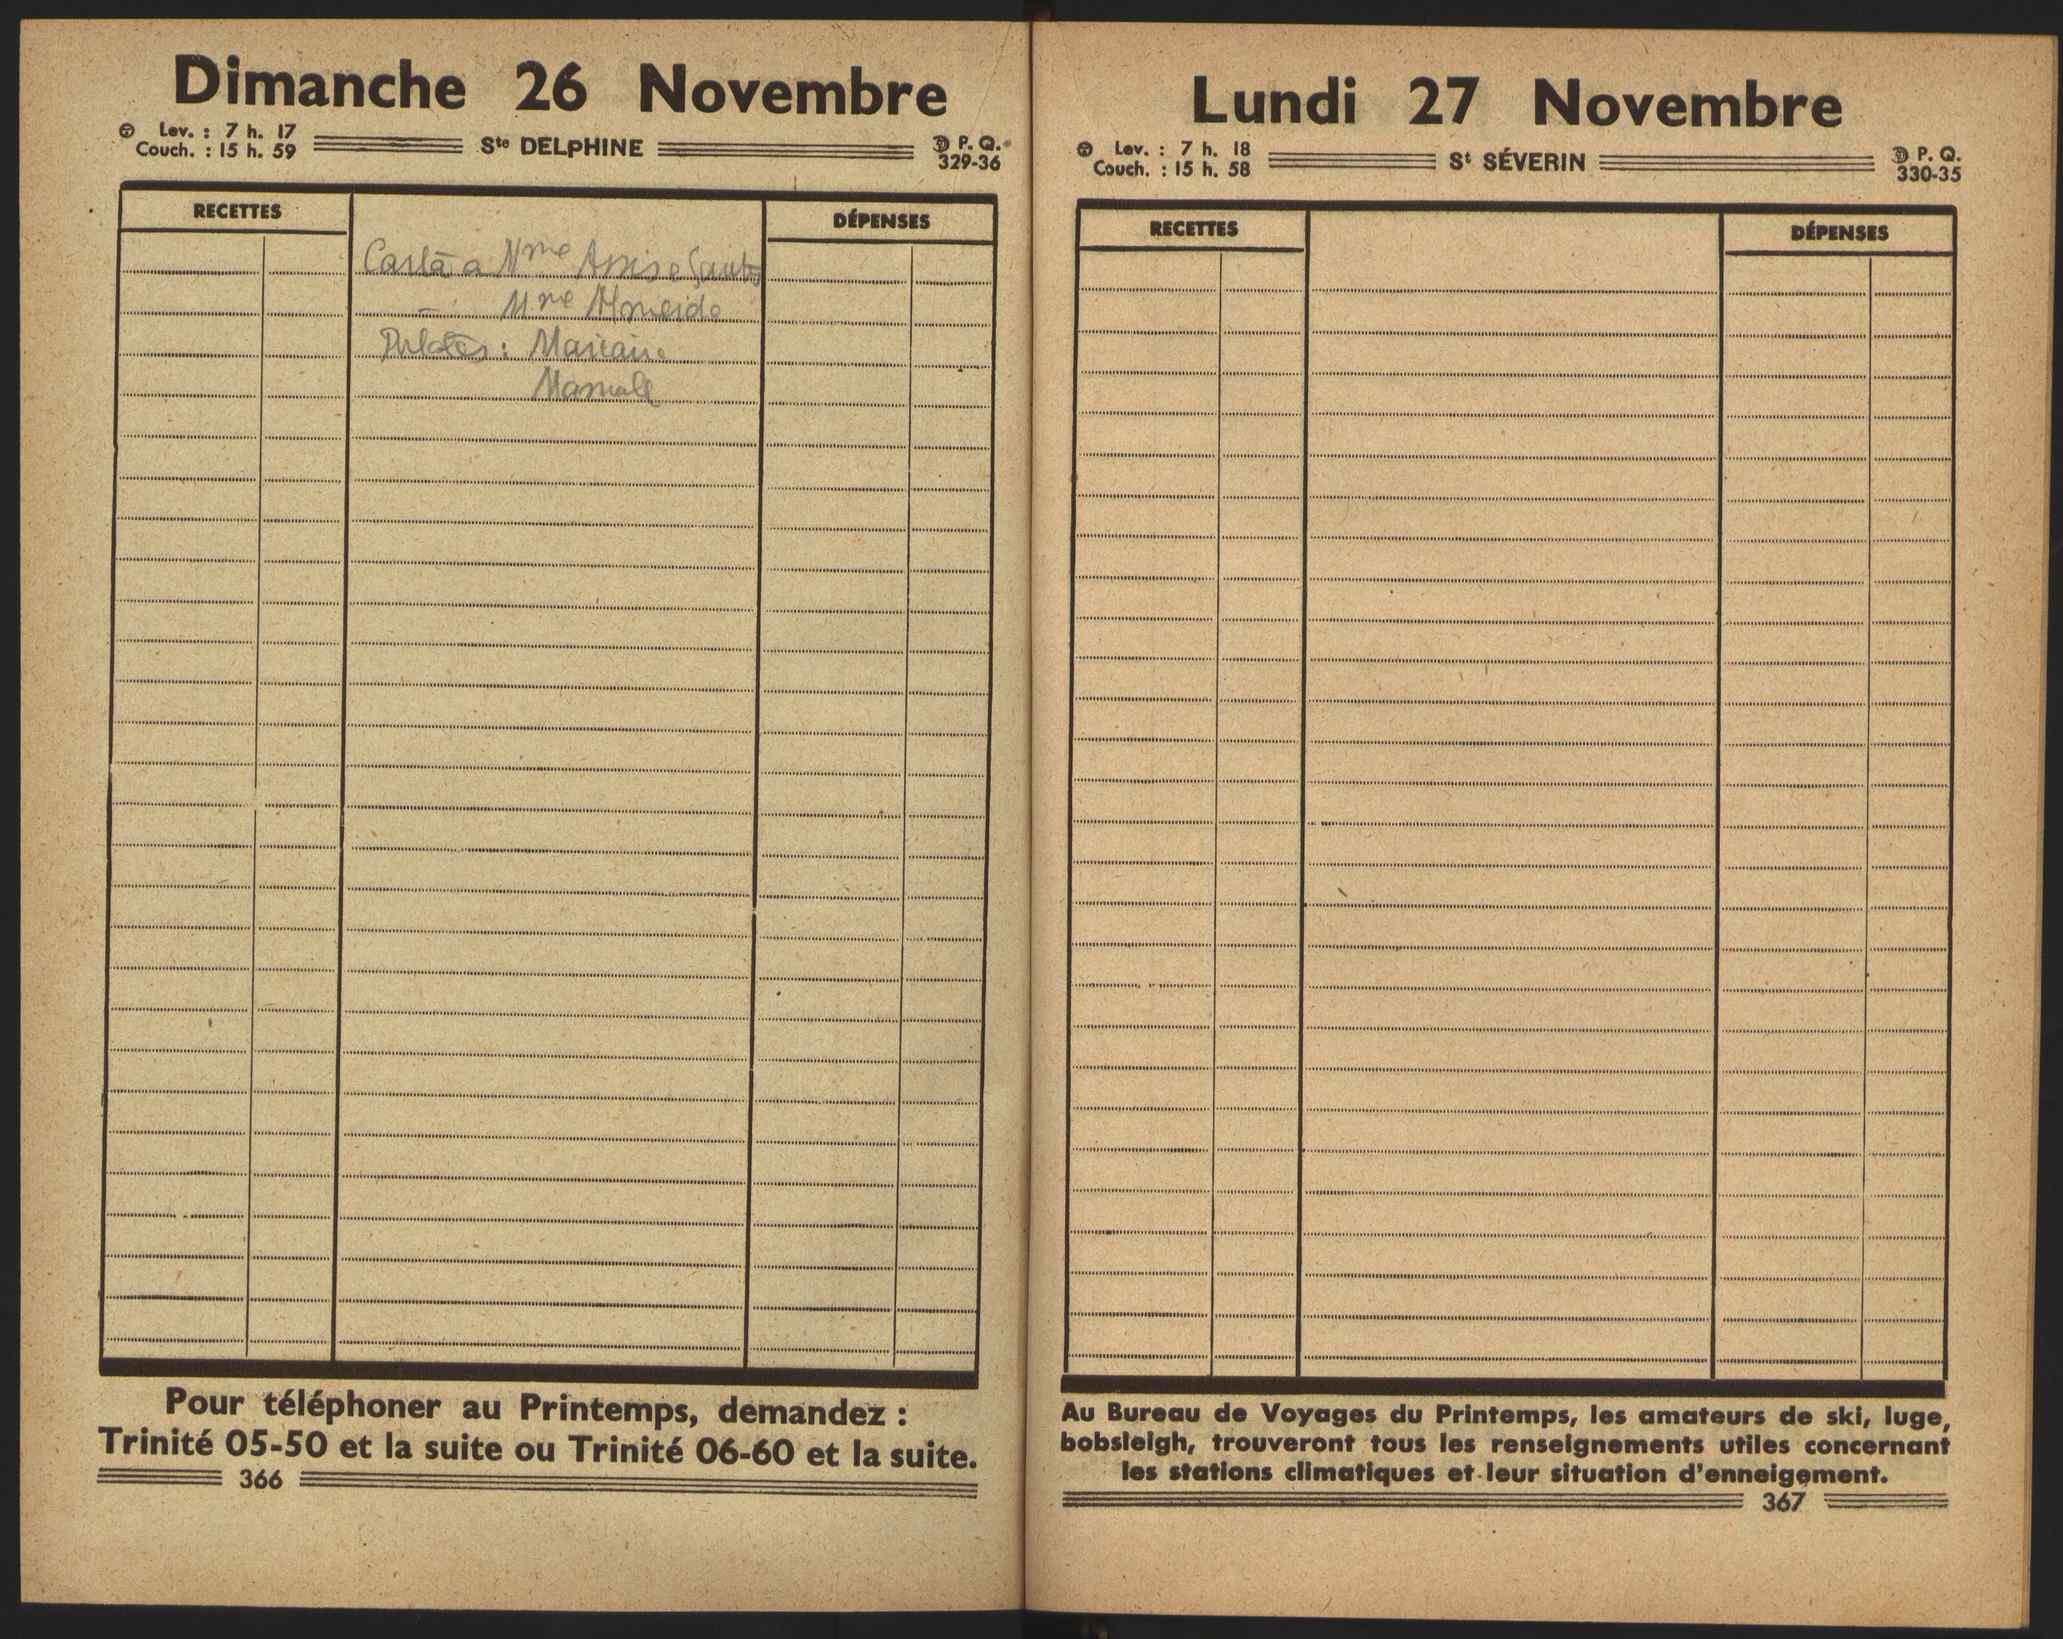 Dimanche 26 Novembre
Lev. : 7 h. 17
Couch. : 15 h. 59
Ste DELPHINE
P. Q.
329-36
RECETTES
DÉPENSES
Carta a Mme
— Mme Almeida
: Mariana
Pour téléphoner au Printemps, demandez :
Trinité 05-50 et la suite ou Trinité 06-60 et la suite.
366
Lundi 27 Novembre
Lev. : 7 h. 18
Couch. : 15 h. 58
St SÉVERIN
P. Q.
330-35
RECETTES
DÉPENSES
Au Bureau de Voyages du Printemps, les amateurs de ski, luge,
bobsleigh, trouveront tous les renseignements utiles concernant
les stations climatiques et leur situation d'enneigement.
367